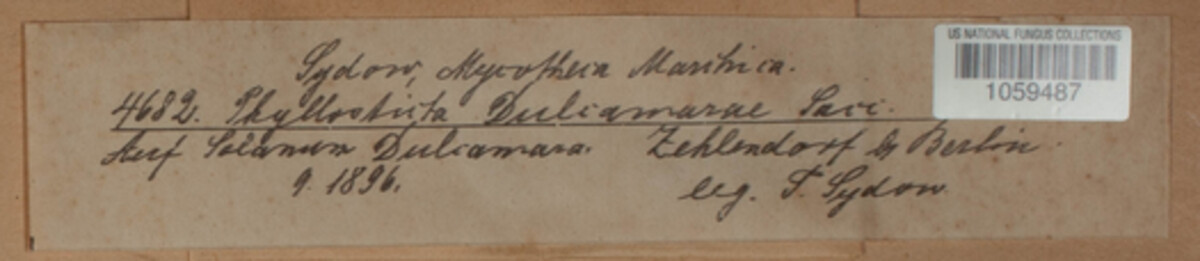 Sydow, Mycotheca Marchica.
US NATIONAL FUNGUS COLLECTIONS
1059487
4682. Phyllosticta Dulcamarae Sacc.
Auf Solanum Dulcamara. Zehlendorf b. Berlin.
9. 1896. leg. P. Sydow